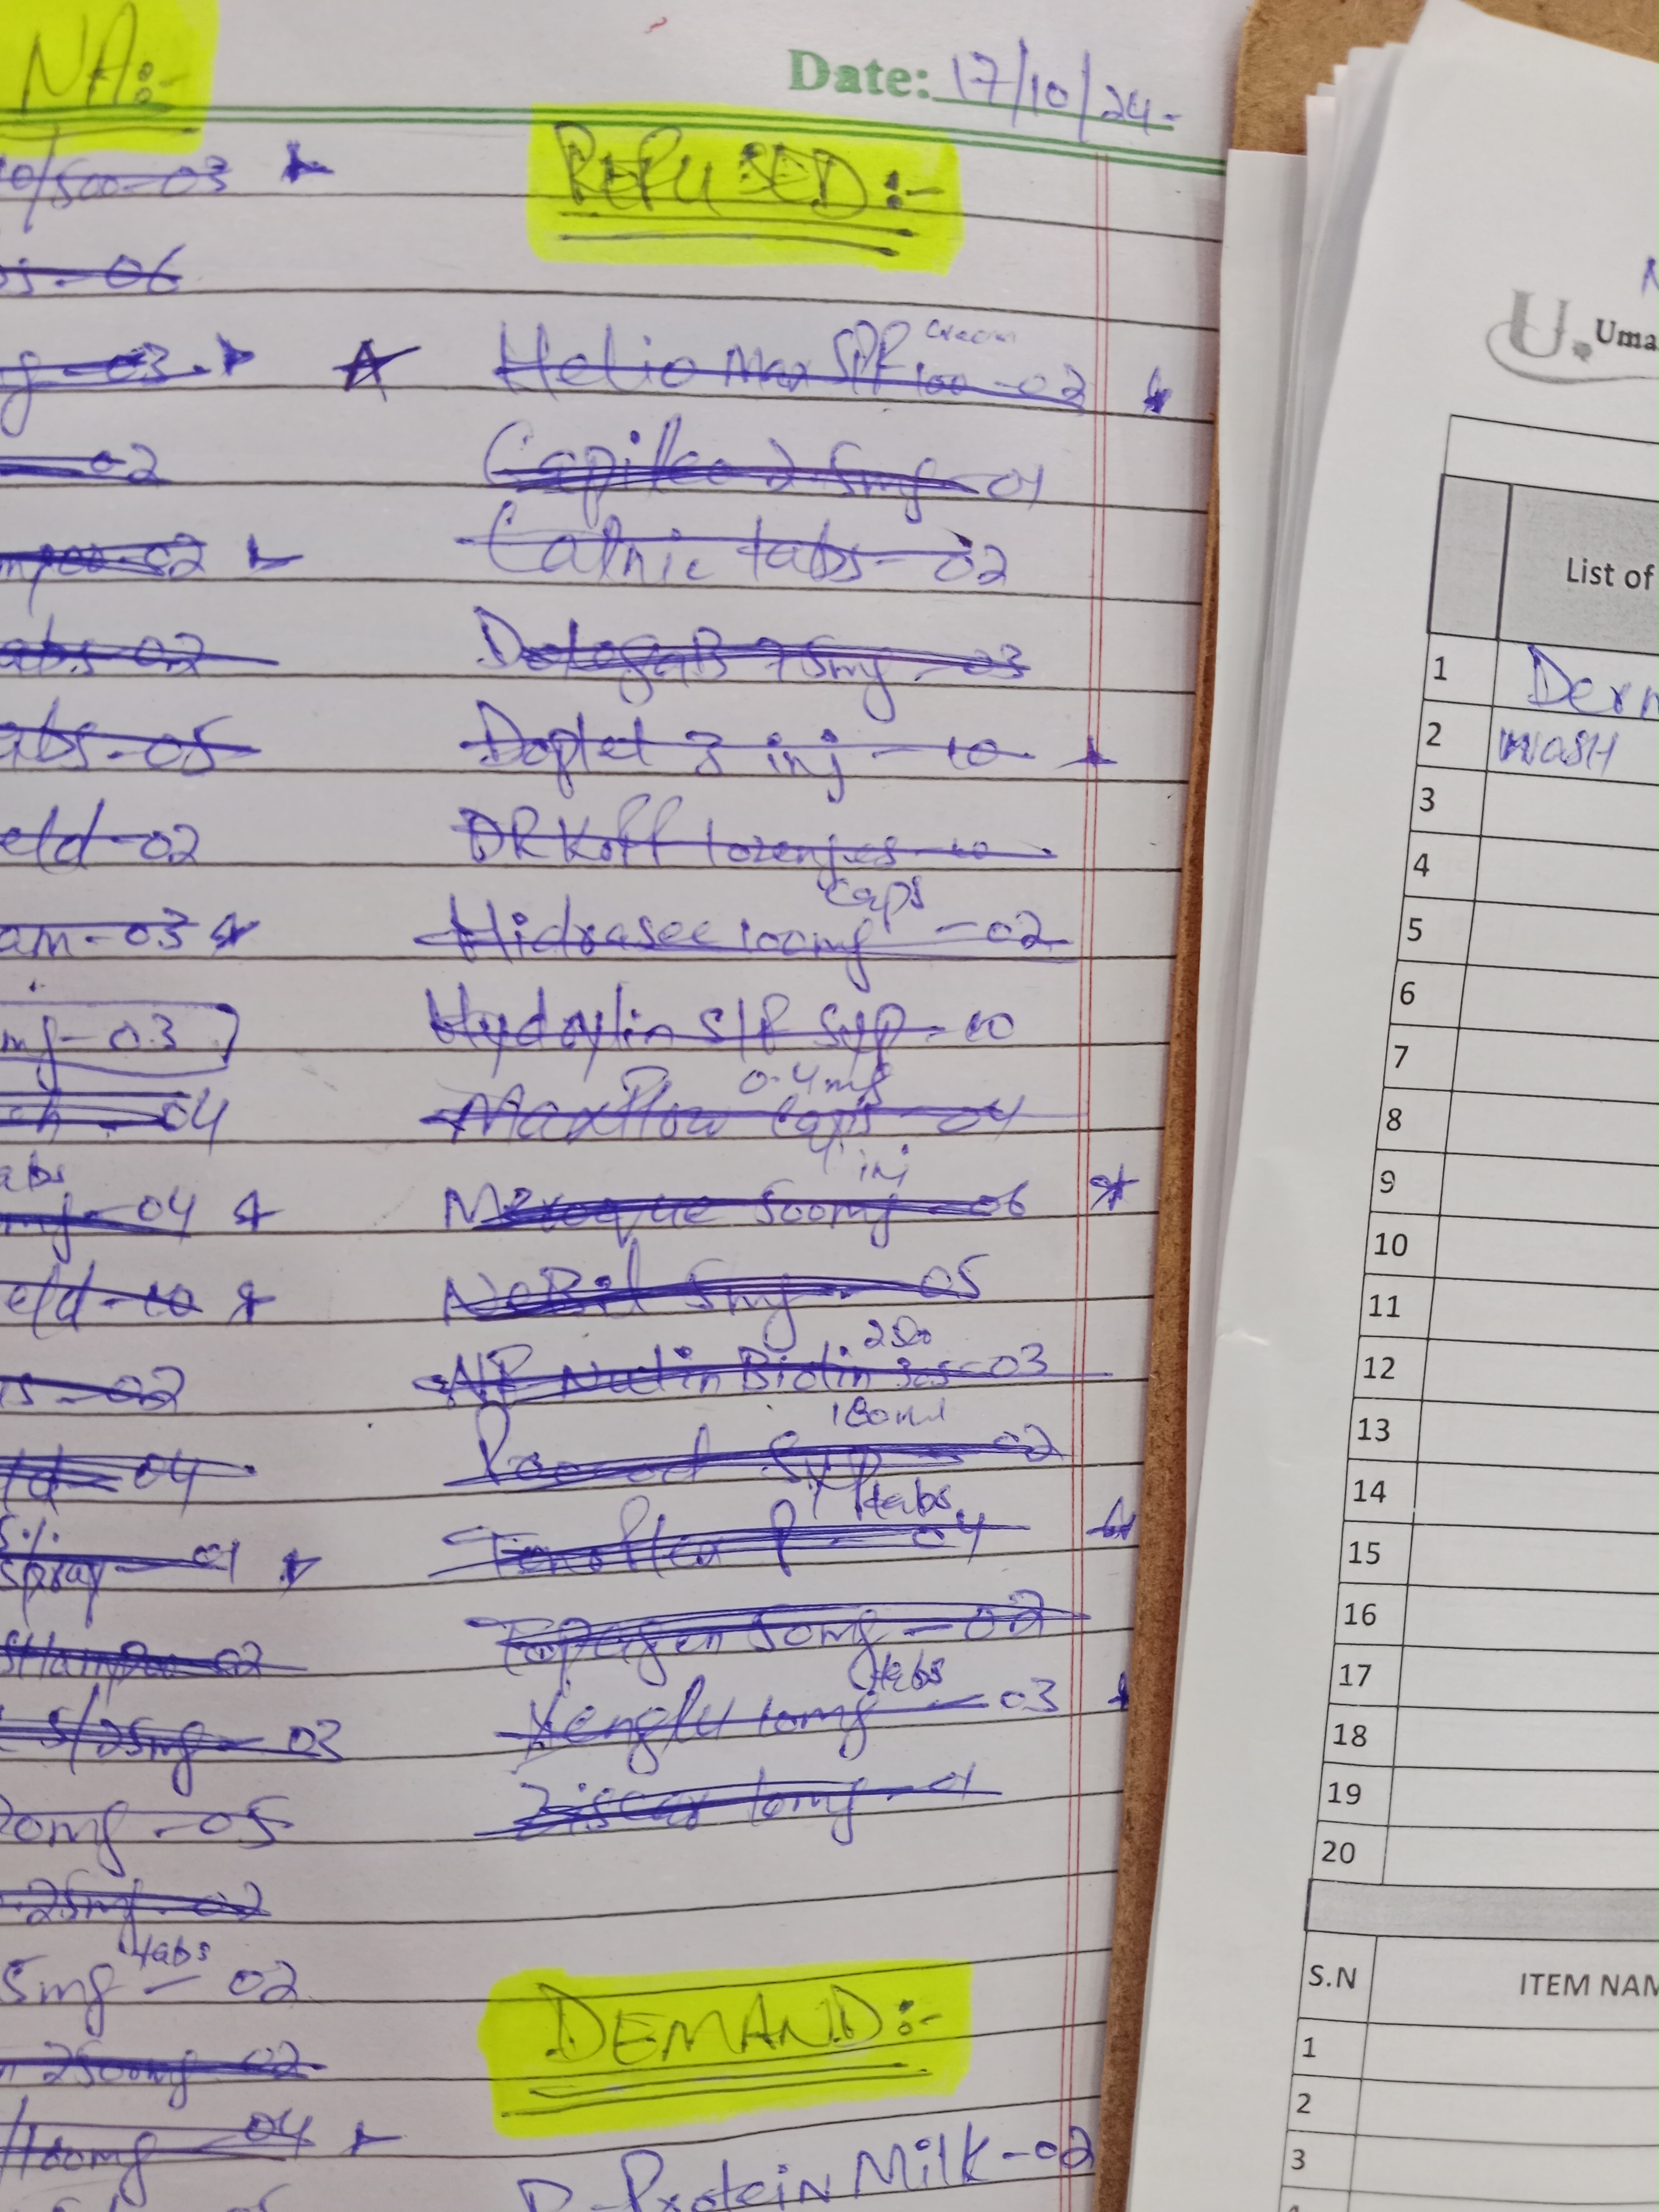 NA:-
Date: 17/10/24
REFUSED:-
0/500-03
-06
Helio Max SPF cream 100-02
-03
Capilto 2.5mg-01
-02
Calnic tabs-02
-02
abs-02
DologaB 75mg-03
abs-05
Doplet 3 inj-10
eld-02
DR Koff lozenjes-10
am-03
Hidrasec 100mg caps-02
mg-03
Hydrylin S/F Syp-10
ch-04
Maxflow 0.4mg caps-04
abs
mg-04
500mg inj-06
eld-10
NeBil 5mg-05
-02
NP Nutin Biotin 250-03
-04
Syp 180ml-02
5%
Spray-01
Tonoflex P tabs-04
-02
Topagen 50mg-02
5/25mg-03
Xenglu 10mg tabs-03
20mg-05
Ziscar 10mg-01
.25mg-02
5mg tabs-02
DEMAND:-
250mg-02
/100mg-04
Protein Milk-02
U.
Uma
List of
1 Derm
2 WASH
3
4
5
6
7
8
9
10
11
12
13
14
15
16
17
18
19
20
S.N ITEM NAM
1
2
3